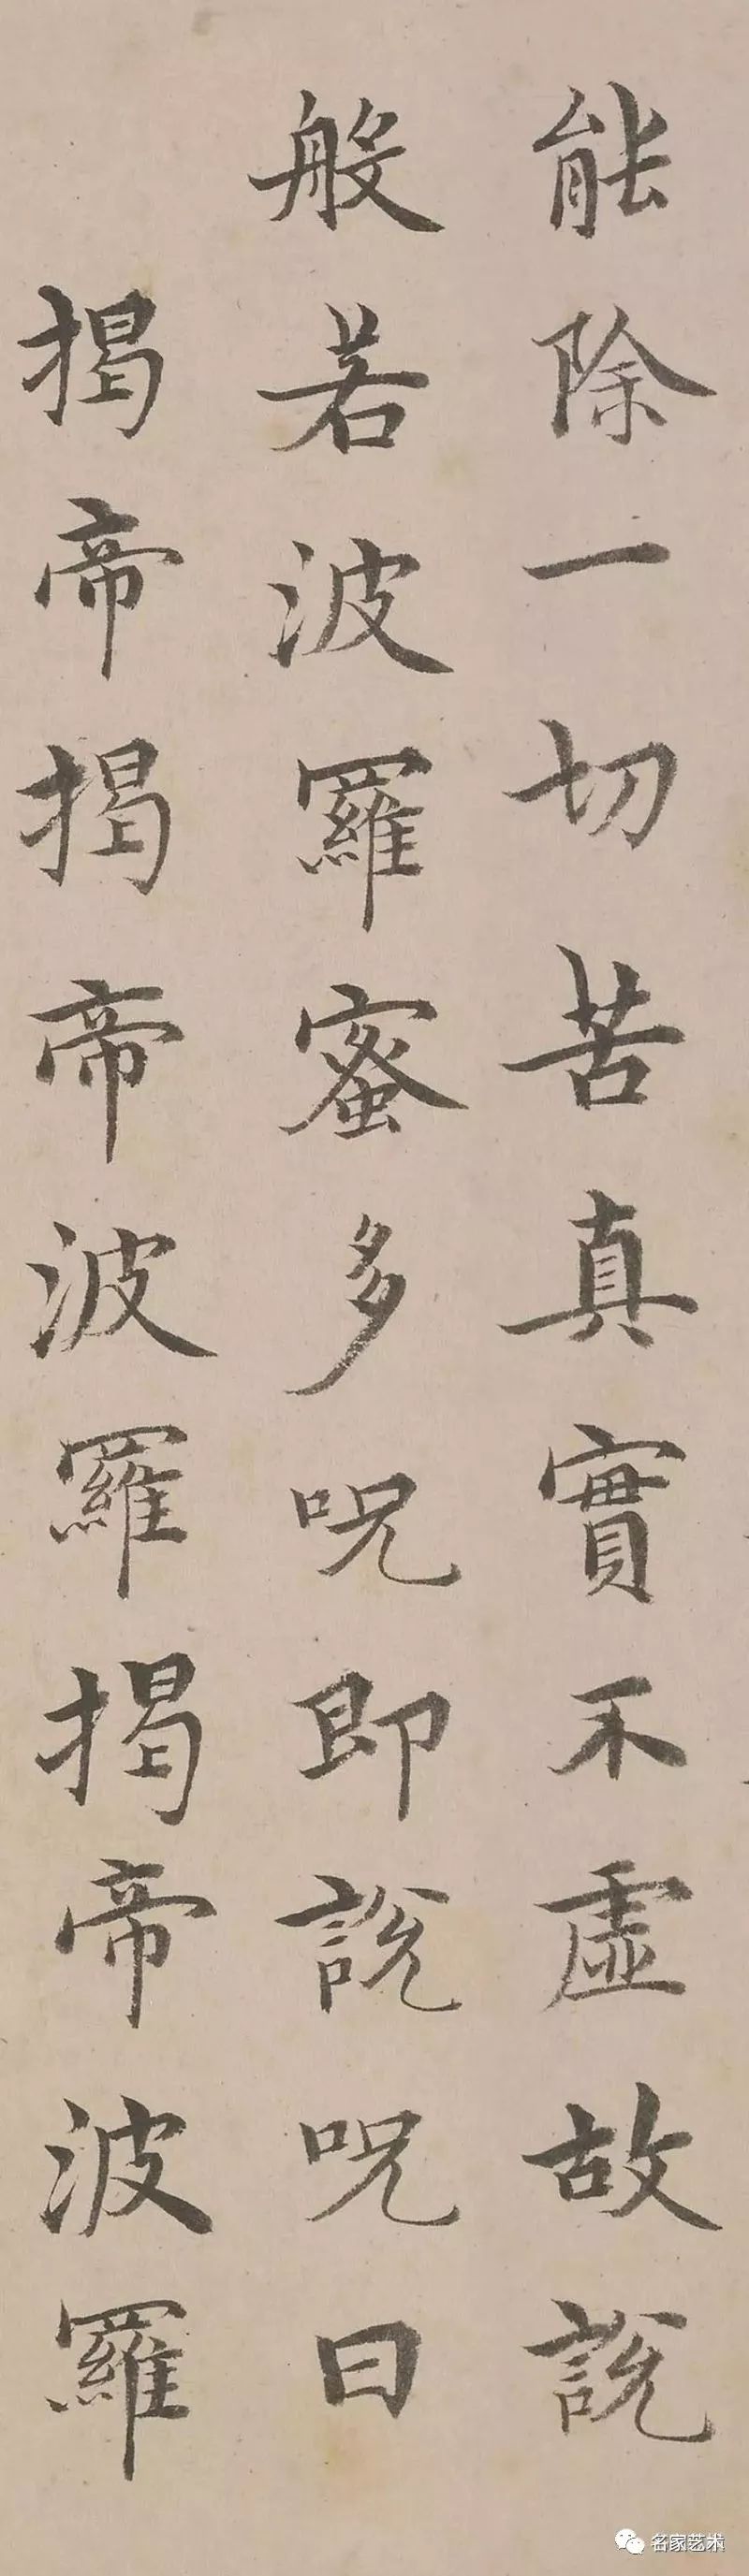 能除一切苦真實不虛故說
般若波羅蜜多呪即說呪曰
揭帝揭帝波羅揭帝波羅
名家艺术